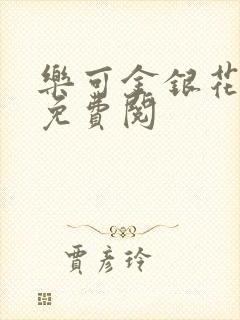 樂可金銀花
免費閱
賈彥玲